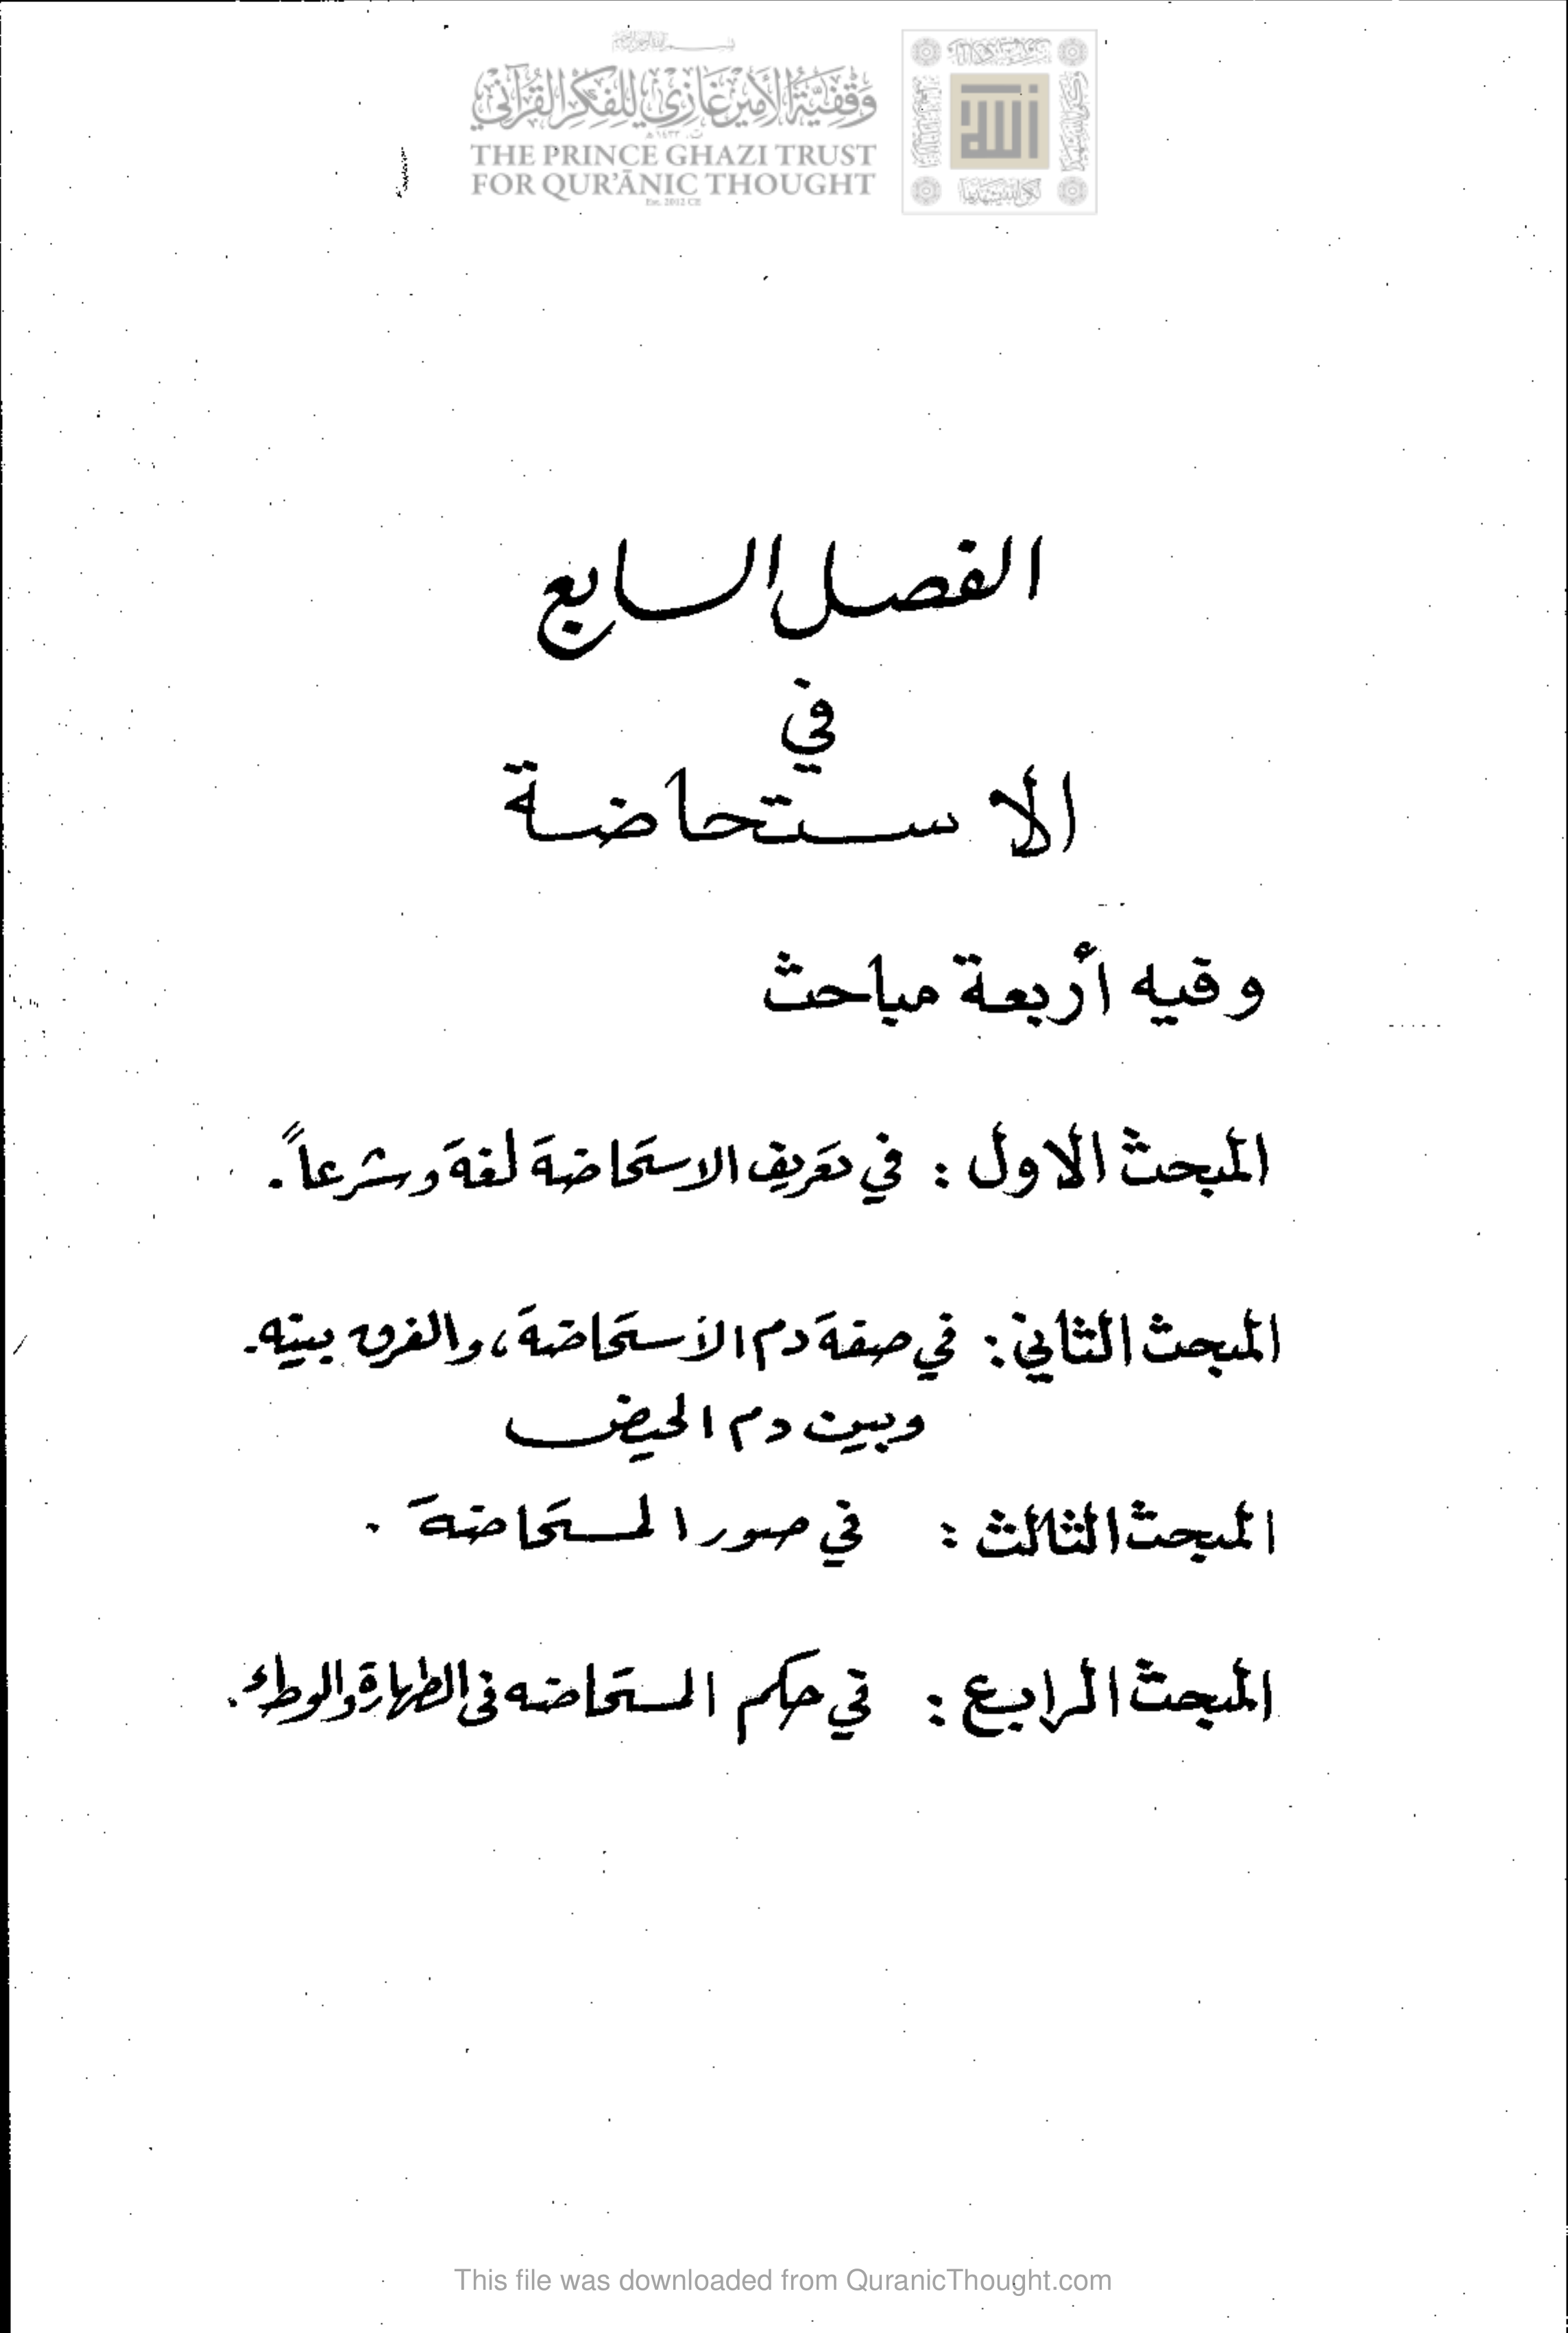 وقفية الأمير غازي للفكر القرآني
THE PRINCE GHAZI TRUST
FOR QUR'ĀNIC THOUGHT
Est. 2012 CE
الفصل السابع
في
الاستحاضة
وفيه أربعة مباحث
المبحث الأول : في تعريف الاستحاضة لغة وشرعاً .
المبحث الثاني : في صفة دم الاستحاضة ، والفرق بينه
وبين دم الحيض
المبحث الثالث : في صور المستحاضة .
المبحث الرابع : في حكم المستحاضه فى الطهارة والوطء .
This file was downloaded from QuranicThought.com